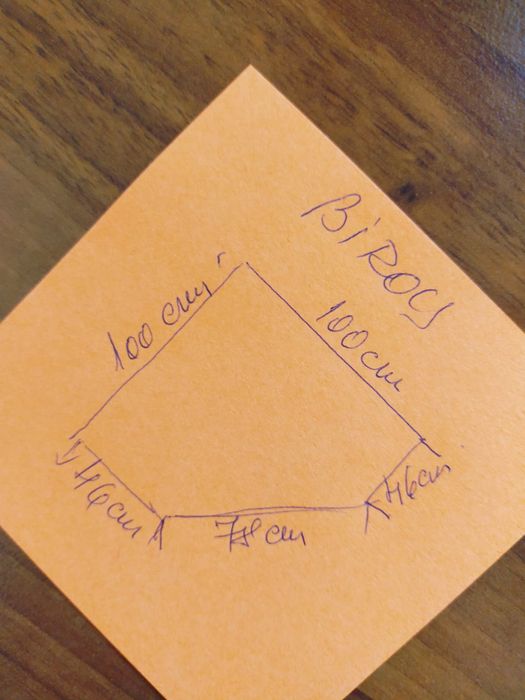 BiROU
100 cm
100 cm
46 cm
46 cm
cm